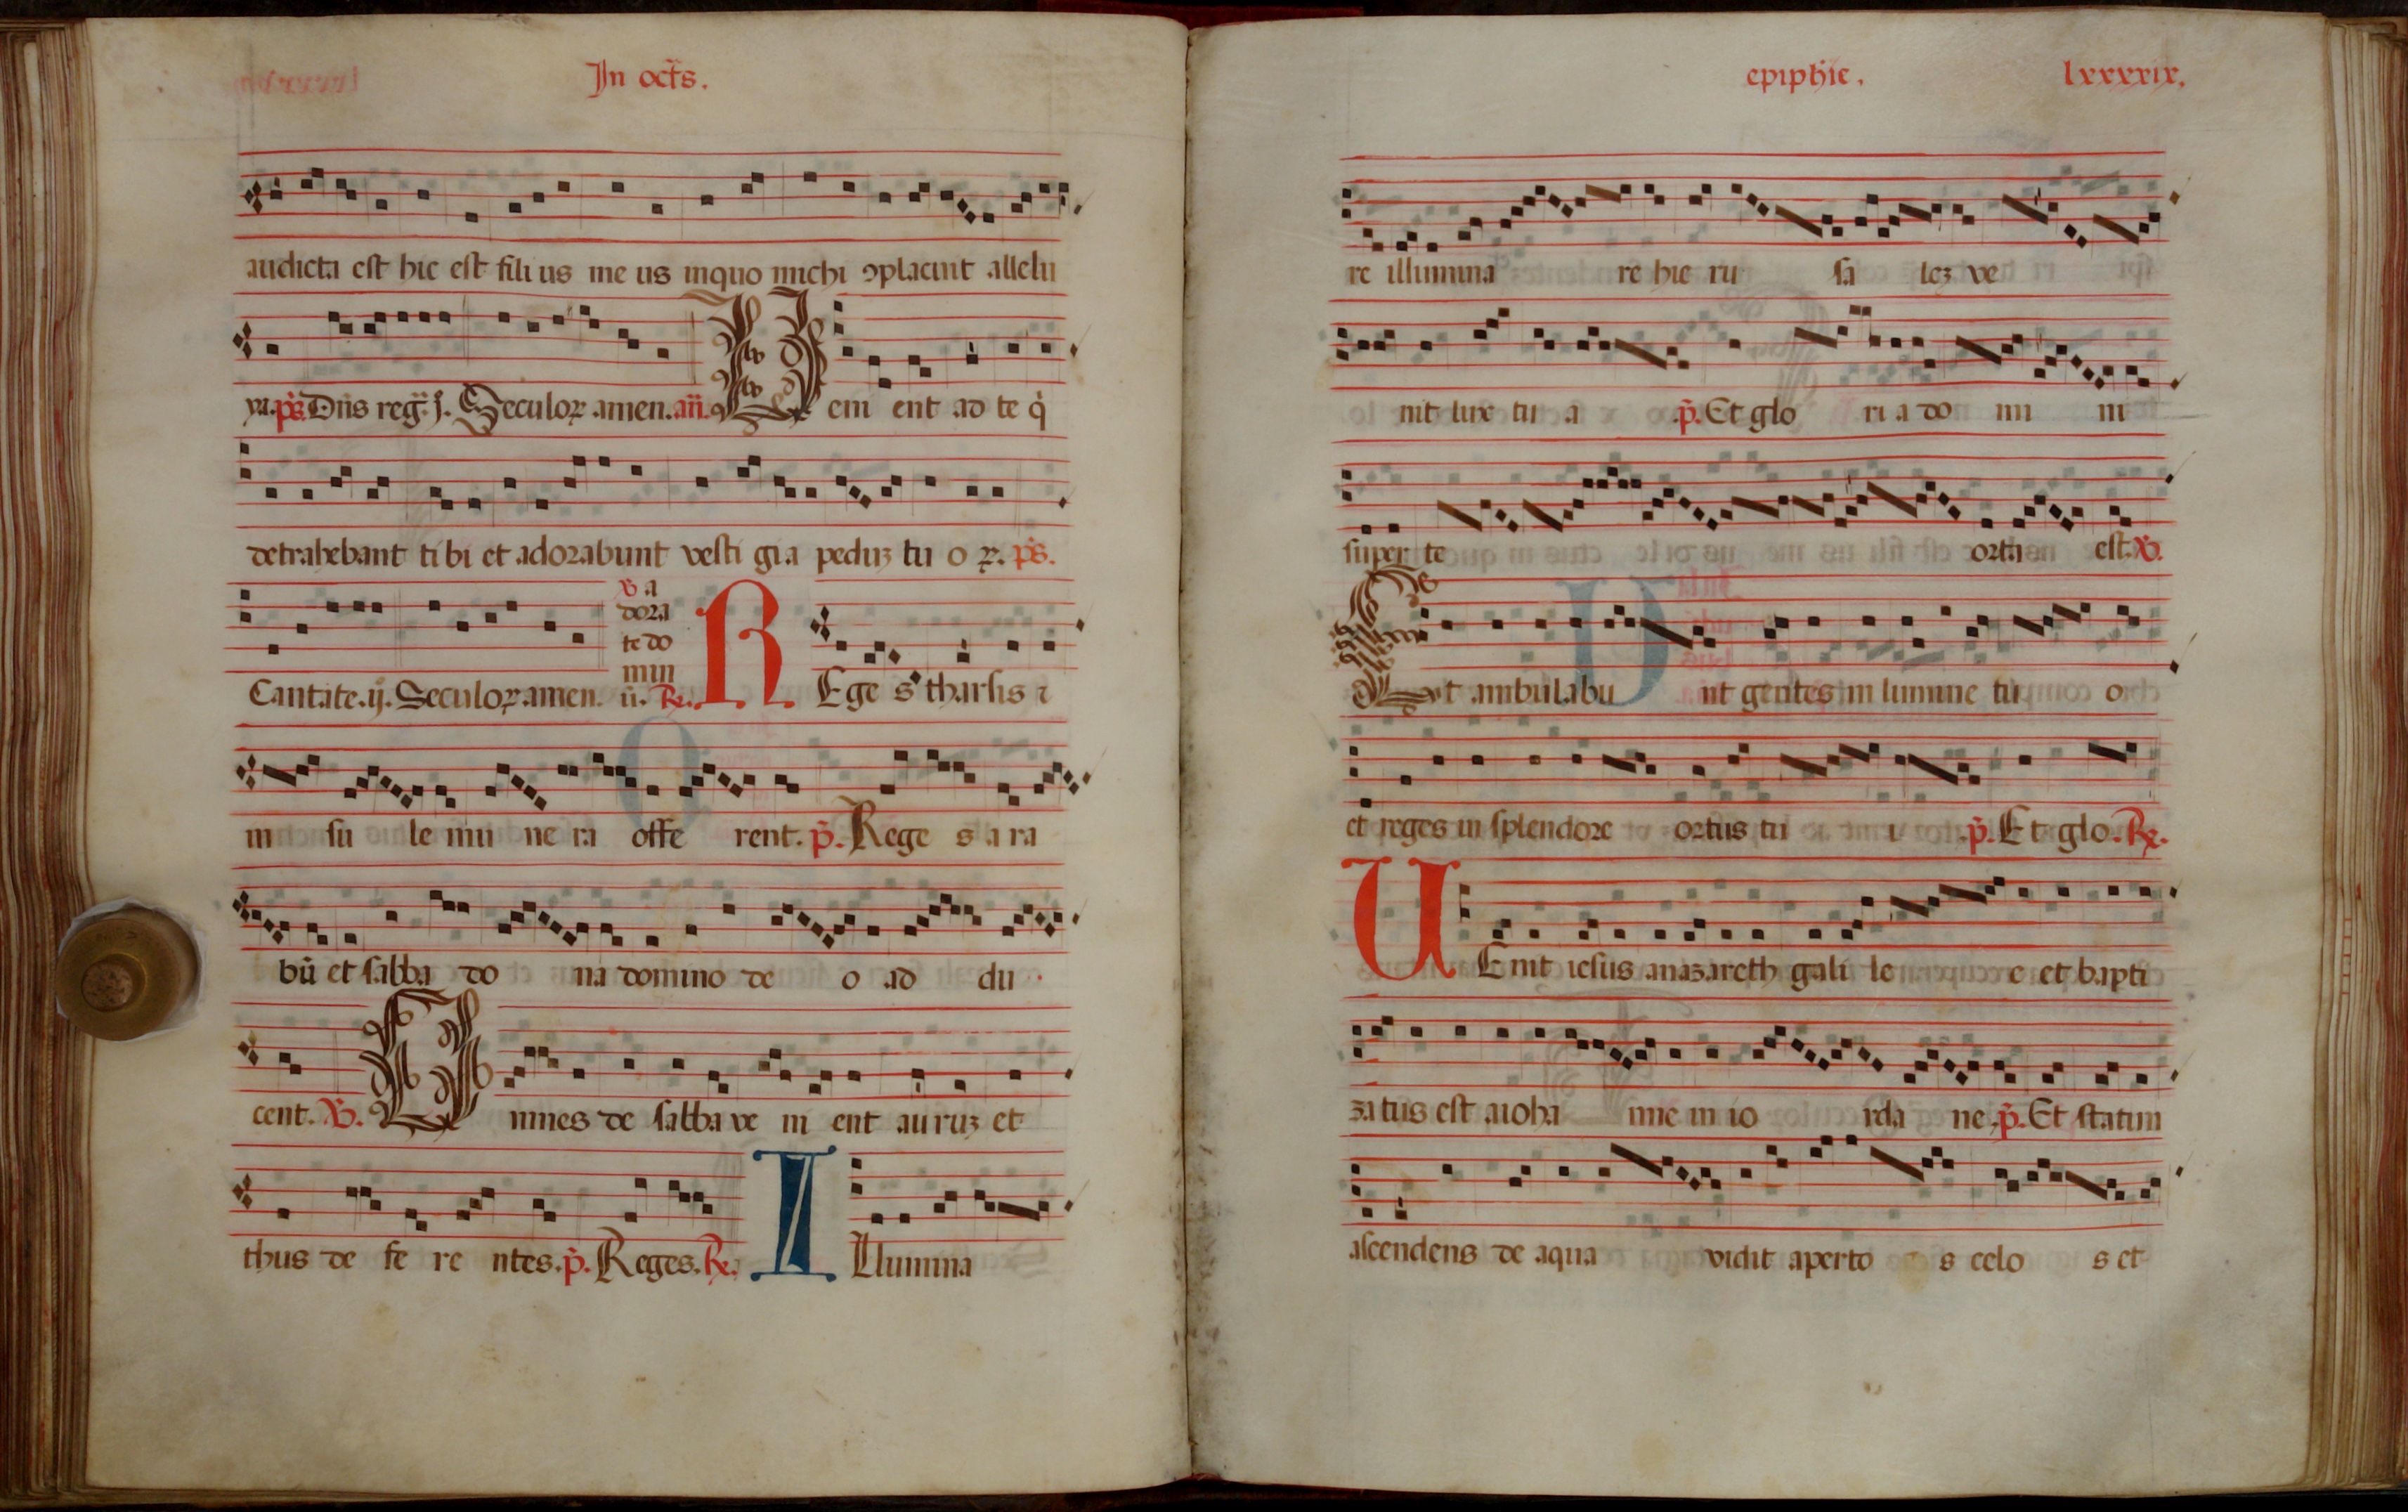 In oct̃s.
audicta est hic est fili us me us inquo michi ꝯplacuit allelu
ya. p̃s. Dn̄s reg̃. j. Seculoꝝ amen. an̄. V eni ent ad te q̇
detrahebant ti bi et adorabunt vesti gi a peduꝫ tu o ꝝ. p̃s.
Cantate. ij. Seculoꝝ amen. ℣ a
dora
te do
min
ū. ℞. R Ege s tharsis ⁊
in su le mu ne ra offe rent. p̃. Rege s a ra
bū et sabba do na domino de o ad du
cent. ℣. O mnes de sabba ve ni ent au ruꝫ et
thus de fe re ntes. p̃. Reges. ℞. I Llumina
epiph̄ie. lxxxxix.
re illumina re hie ru sa leꝫ ve
nit lux tu a p̃. Et glo ri a do mi ni
super te orta est. ℣.
Et ambulabu nt gentes in lumine tu o
et reges in splendore ortus tu i p̃. Et glo. ℞.
V Enit iesus anazareth gali le e et bapti
zatus est aioha nne in io rda ne, p̃. Et statim
ascendens de aqua vidit aperto s celo s et